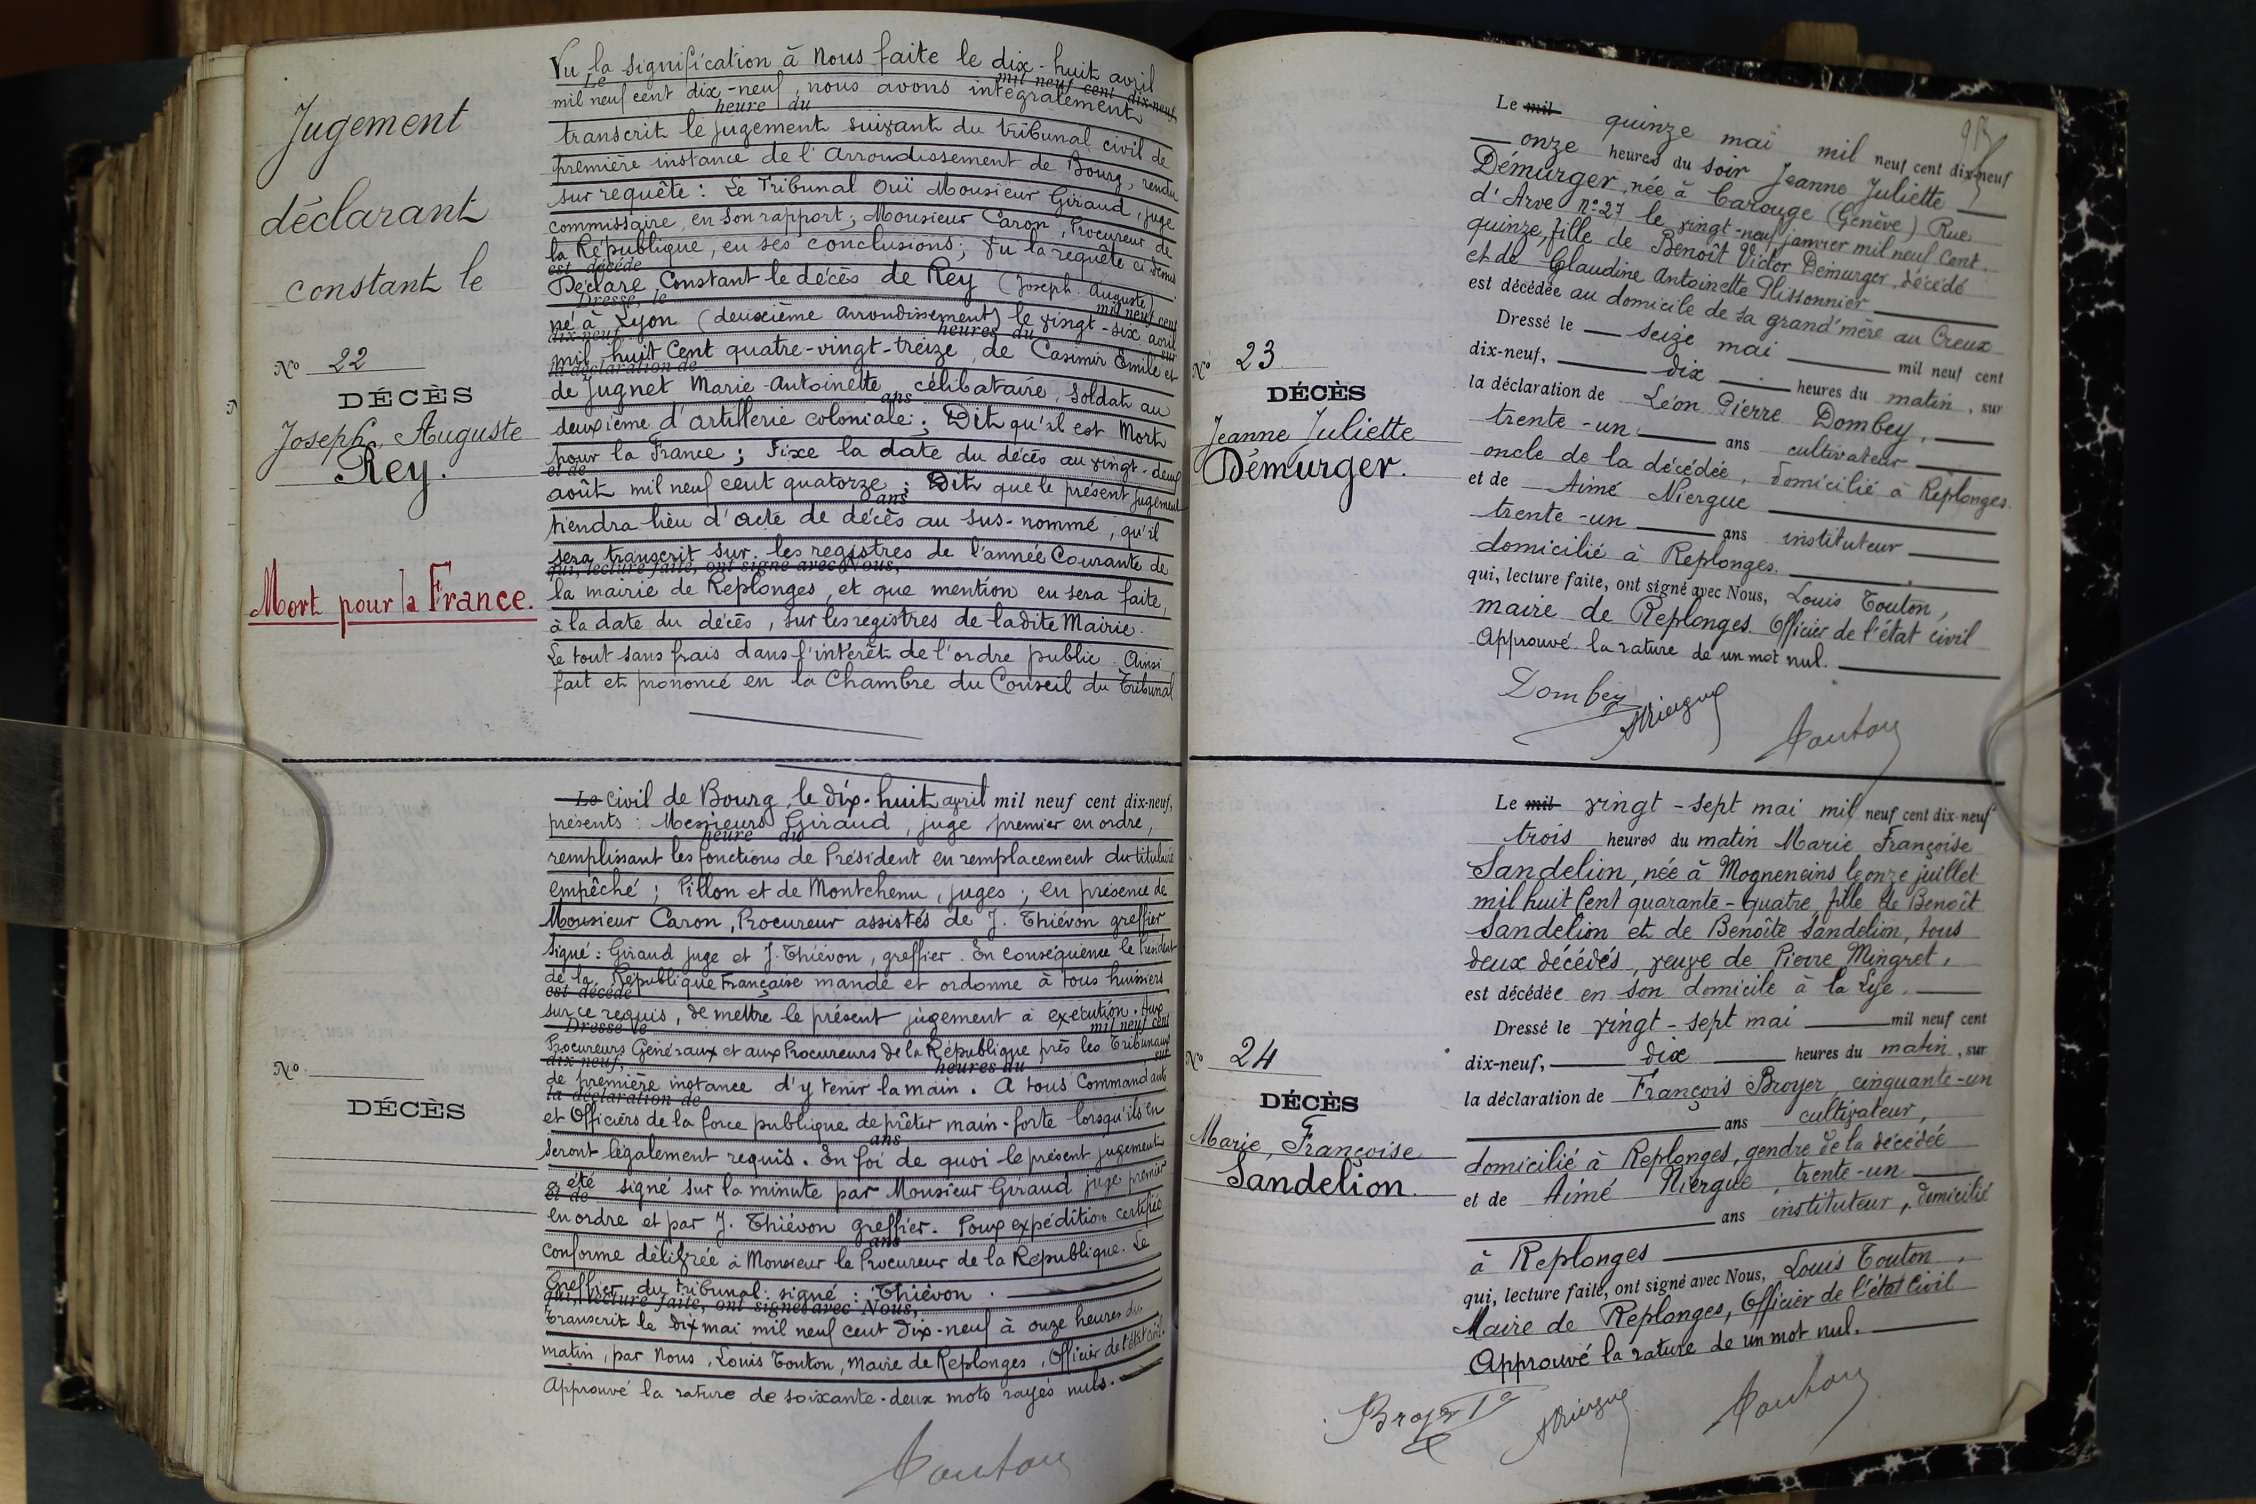 Jugement
déclarant
constant le
Nº 22
DÉCÈS
Joseph, Auguste
Rey.
Mort pour la France.
Vu la signification à Nous faite le dix-huit avril
Le mil neuf cent dix-neuf
mil neuf cent dix-neuf, nous avons intégralement
heure du
transcrit le jugement suivant du tribunal civil de
première instance de l'Arrondissement de Bourg, rendu
sur requête : Le Tribunal Ouï Monsieur Giraud, juge
commissaire, en son rapport ; Monsieur Caron, Procureur de
la République, en ses conclusions ; Vu la requête ci-dessus
est décédé
Déclare Constant le décès de Rey (Joseph. Auguste)
Dressé, le mil neuf cent
né à Lyon (deuxième arrondissement) le vingt-six avril
dix-neuf heures du sur
mil huit cent quatre-vingt-treize, de Casimir Emile et
la déclaration de
de Jugnet Marie-Antoinette, célibataire, Soldat au
ans
deuxième d'artillerie coloniale ; Dit qu'il est Mort
pour la France ; Fixe la date du décès au vingt-deux
et de
août mil neuf cent quatorze ; Dit que le présent jugement
ans
tiendra lieu d'acte de décès au sus-nommé, qu'il
sera transcrit sur les registres de l'année Courante de
qui, lecture faite, ont signé avec Nous,
la mairie de Replonges, et que mention en sera faite,
à la date du décès, sur les registres de ladite Mairie.
Le tout sans frais dans l'intérêt de l'ordre public. Ainsi
fait et prononcé en la Chambre du Conseil du Tribunal
Nº
DÉCÈS
Le civil de Bourg, le dix-huit avril mil neuf cent dix-neuf,
présents : Messieurs Giraud, juge premier en ordre,
heure du
remplissant les fonctions de Président en remplacement du titulaire
empêché ; Pillon et de Montchenu, juges ; en présence de
Monsieur Caron, Procureur assistés de J. Thiévon greffier
Signé : Giraud juge et J. Thiévon, greffier. En conséquence le Président
de la République Française mande et ordonne à tous huissiers
est décédé
sur ce requis, de mettre le présent jugement à exécution. Aux
Dressé le mil neuf cent
Procureurs Généraux et aux Procureurs de la République près les Tribunaux
dix-neuf, heures du sur
de première instance d'y tenir la main. A tous Commandants
la déclaration de
et Officiers de la force publique de prêter main-forte lorsqu'ils en
ans
seront légalement requis. En foi de quoi le présent jugement
a été signé sur la minute par Monsieur Giraud juge premier
et de
en ordre et par J. Thiévon greffier. Pour expédition certifiée
ans
conforme délivrée à Monsieur le Procureur de la République. Le
Greffier du tribunal : signé : Thiévon.
qui, lecture faite, ont signé avec Nous,
Transcrit le dix mai mil neuf cent dix-neuf à onze heures du
matin, par Nous, Louis Touton, Maire de Replonges, Officier de l'état civil.
Approuvé la rature de soixante-deux mots rayés nuls.
Touton
Nº 23
DÉCÈS
Jeanne Juliette
Démurger.
Le mil quinze mai mil neuf cent dix-neuf
onze heures du soir Jeanne Juliette
Démurger, née à Carouge (Genève) Rue
d'Arve nº 27 le vingt-neuf janvier mil neuf cent
quinze, fille de Benoît Victor Démurger, décédé
et de Claudine Antoinette Plissonnier
est décédée au domicile de sa grand'mère au Creux
Dressé le seize mai mil neuf cent
dix-neuf, dix heures du matin, sur
la déclaration de Léon Pierre Dombey,
trente-un ans cultivateur
oncle de la décédée, domicilié à Replonges.
et de Aimé Niergue
trente-un ans instituteur
domicilié à Replonges.
qui, lecture faite, ont signé avec Nous, Louis Touton,
maire de Replonges. Officier de l'état civil
Approuvé la rature de un mot nul.
Dombey
ANiergue
Touton
Nº 24
DÉCÈS
Marie, Françoise
Sandelion.
Le mil vingt-sept mai mil neuf cent dix-neuf
trois heures du matin Marie Françoise
Sandelion, née à Mogneneins le onze juillet
mil huit cent quarante-quatre, fille de Benoît
Sandelion et de Benoîte Sandelion, tous
deux décédés, veuve de Pierre Mingret,
est décédée en son domicile à la Lye.
Dressé le vingt-sept mai mil neuf cent
dix-neuf, dix heures du matin, sur
la déclaration de François Broyer, cinquante-un
ans cultivateur,
domicilié à Replonges, gendre de la décédée
et de Aimé Niergue, trente-un
ans instituteur, domicilié
à Replonges
qui, lecture faite, ont signé avec Nous, Louis Touton,
Maire de Replonges, Officier de l'état civil
Approuvé la rature de un mot nul.
Broyer
ANiergue
Touton